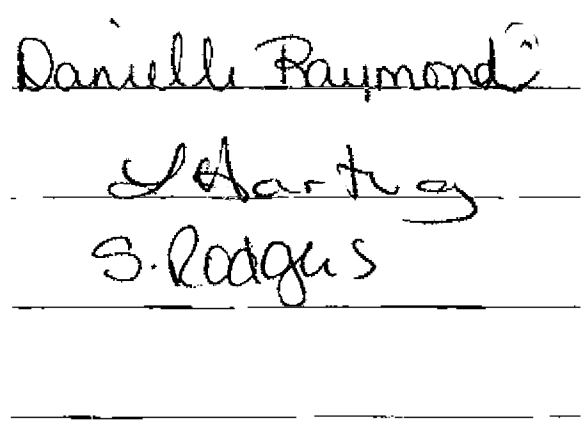 Danielle Raymond
L Hartig
S. Rodgers